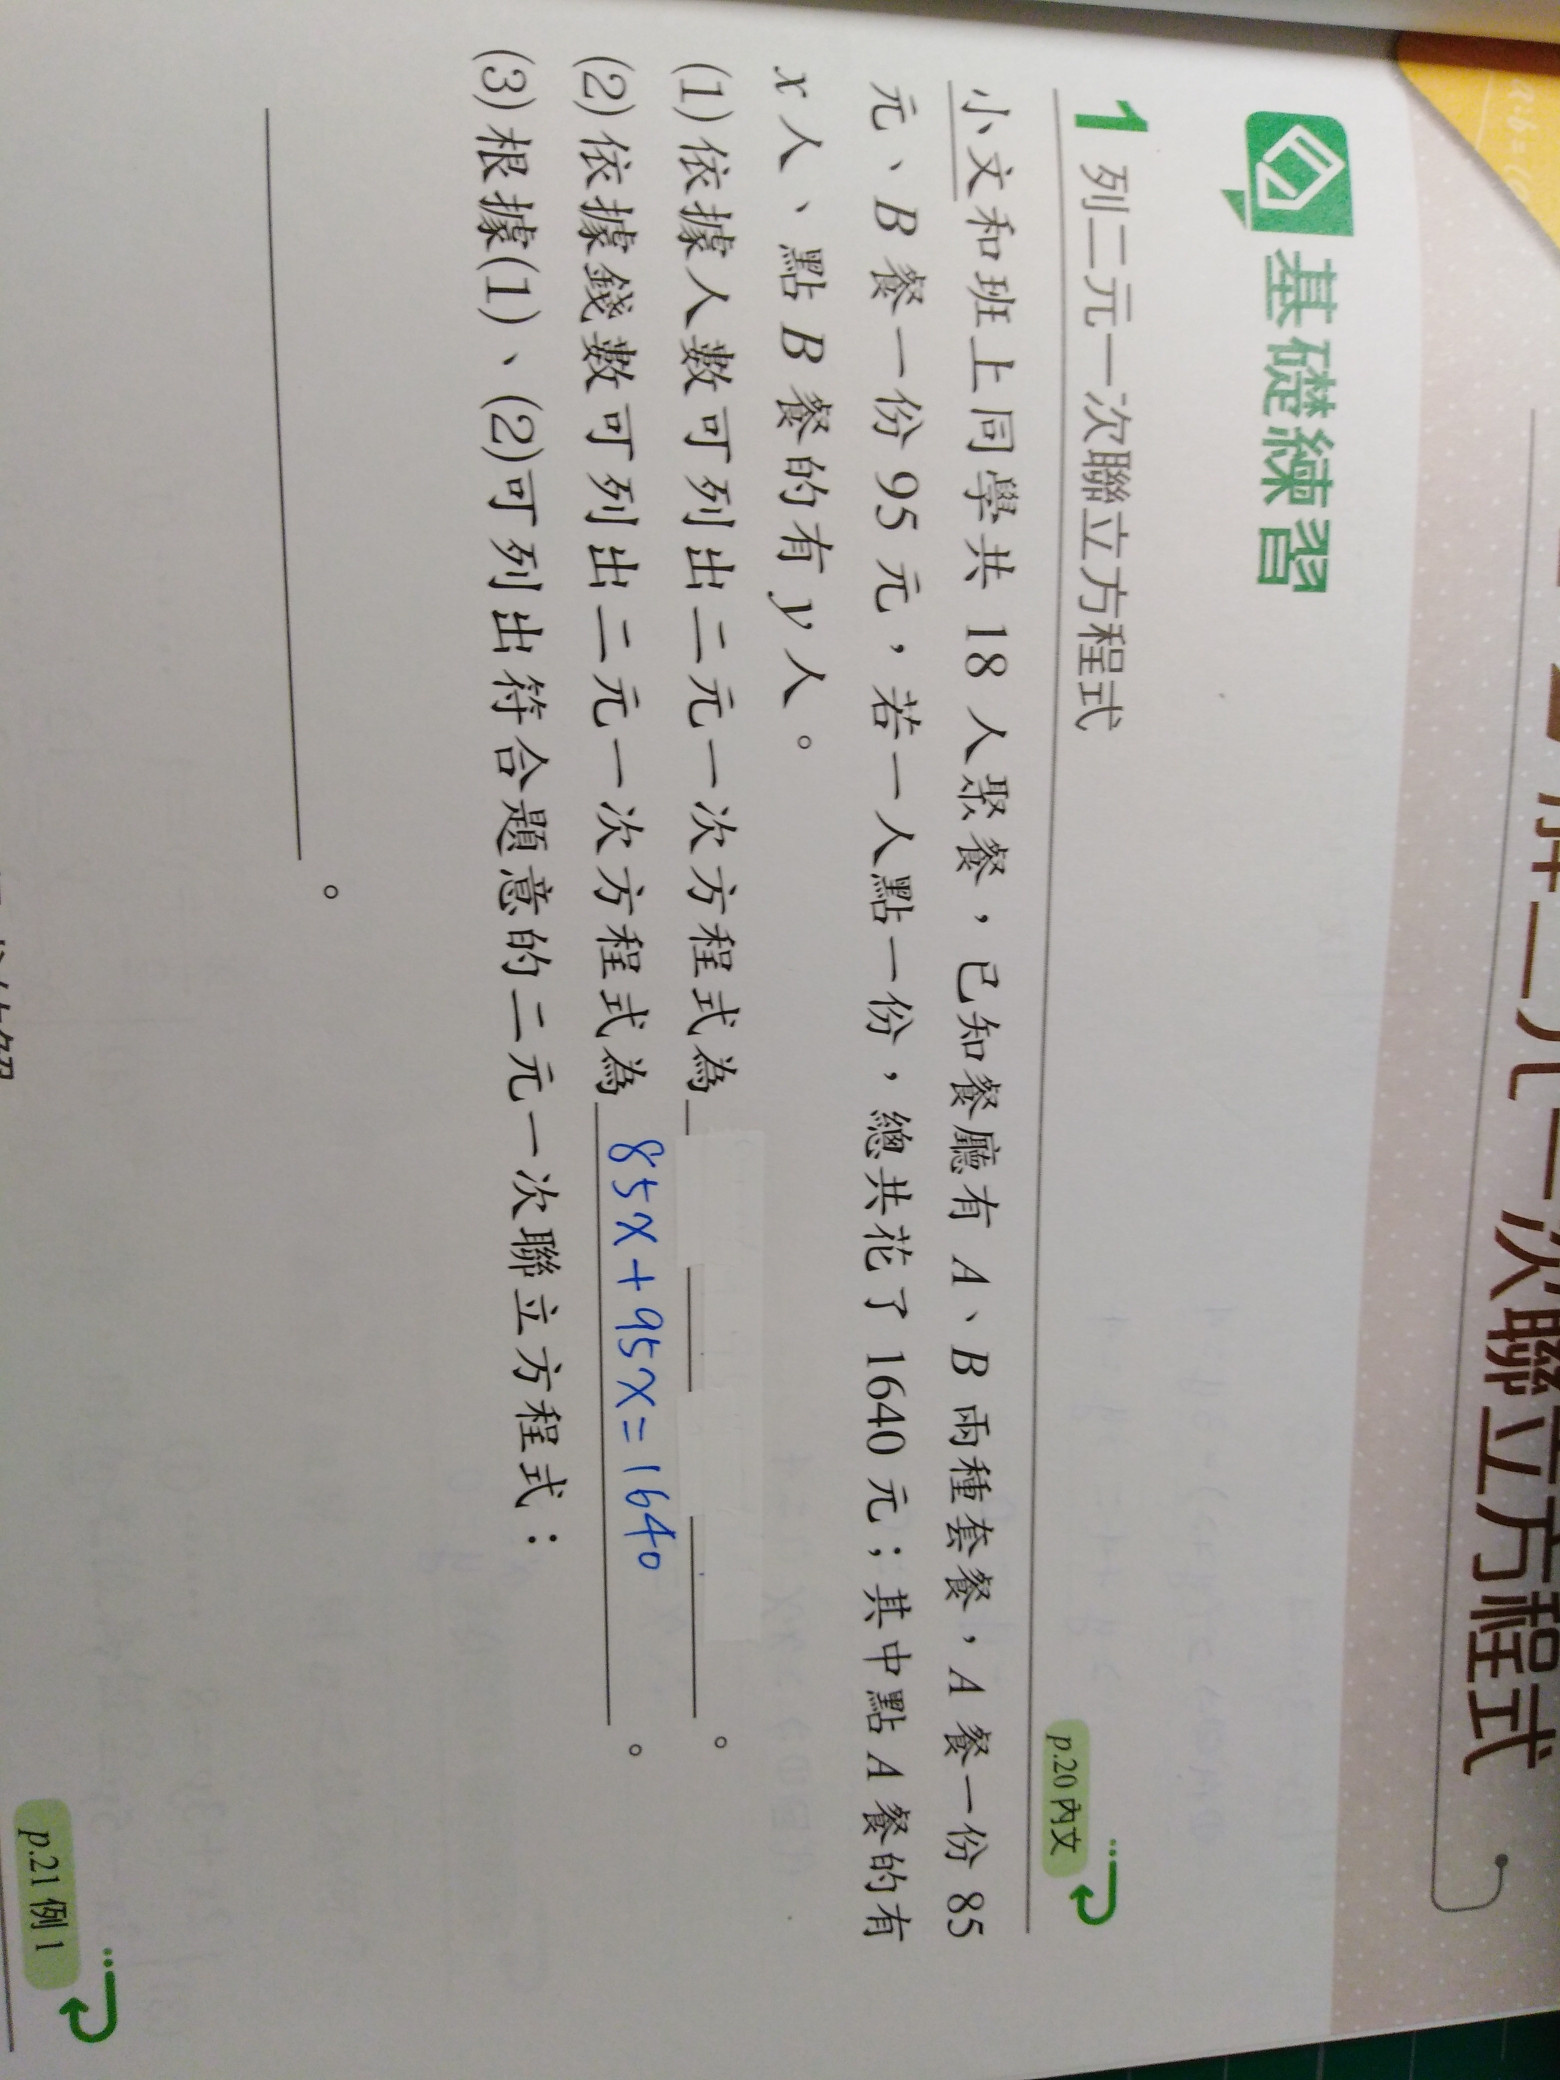 解二元一次聯立方程式
基礎練習
1 列二元一次聯立方程式
p.20 內文
小文和班上同學共 18 人聚餐，已知餐廳有 A、B 兩種套餐，A 餐一份 85
元、B 餐一份 95 元，若一人點一份，總共花了 1640 元；其中點 A 餐的有
x 人、點 B 餐的有 y 人。
(1) 依據人數可列出二元一次方程式為 。
(2) 依據錢數可列出二元一次方程式為 85x+95x=1640 。
(3) 根據(1)、(2)可列出符合題意的二元一次聯立方程式：
。
p.21 例 1